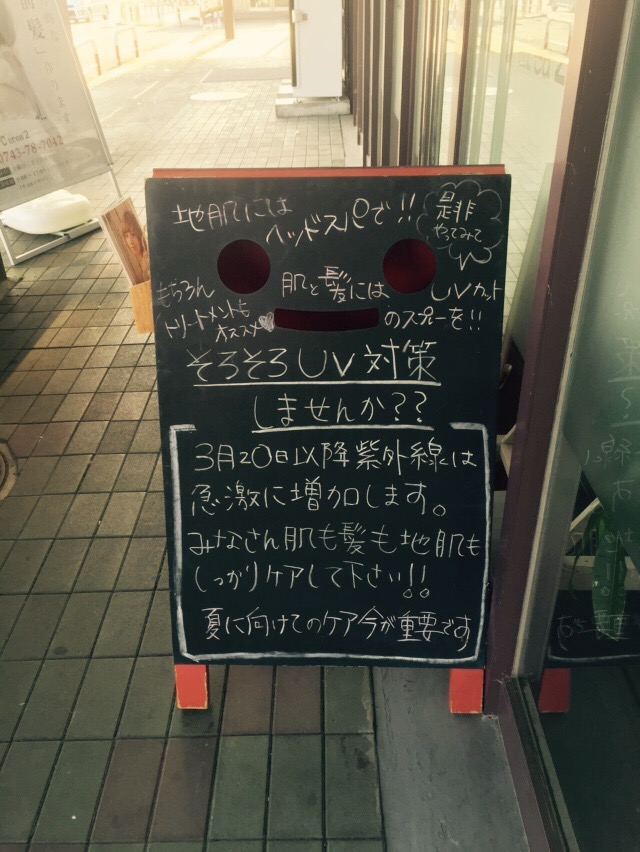 地肌には
ヘッドスパで!!
是非
やってみて
もちろん
トリートメントも
オススメ
肌と髪には
UVカット
のスプレーを!!
そろそろUV対策
しませんか??
3月20日以降紫外線は
急激に増加します。
みなさん肌も髪も地肌も
しっかりケアして下さい!!
夏に向けてのケア今が重要です
0743-78-7042